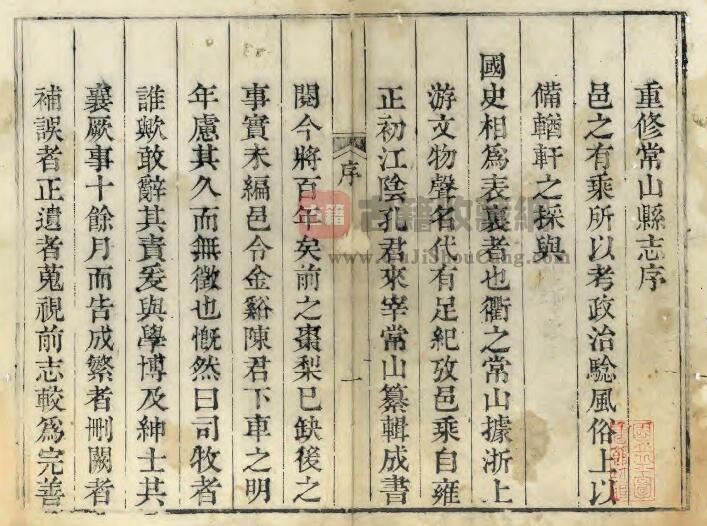 重修常山縣志序
邑之有乘所以考政治騐風俗上以
備輶軒之採與
國史相爲表裏者也衢之常山據浙上
游文物聲名代有足紀攷邑乘自雍
正初江陰孔君來宰常山纂輯成書
序
一
閱今將百年矣前之棗梨已缺後之
事實未編邑令金谿陳君下車之明
年慮其久而無徵也慨然曰司牧者
誰歟敢辭其責爰與學博及紳士其
襄厥事十餘月而告成繁者刪闕者
補誤者正遺者蒐視前志較爲完善
古籍
古籍收藏網
www.GuJiShouCang.com